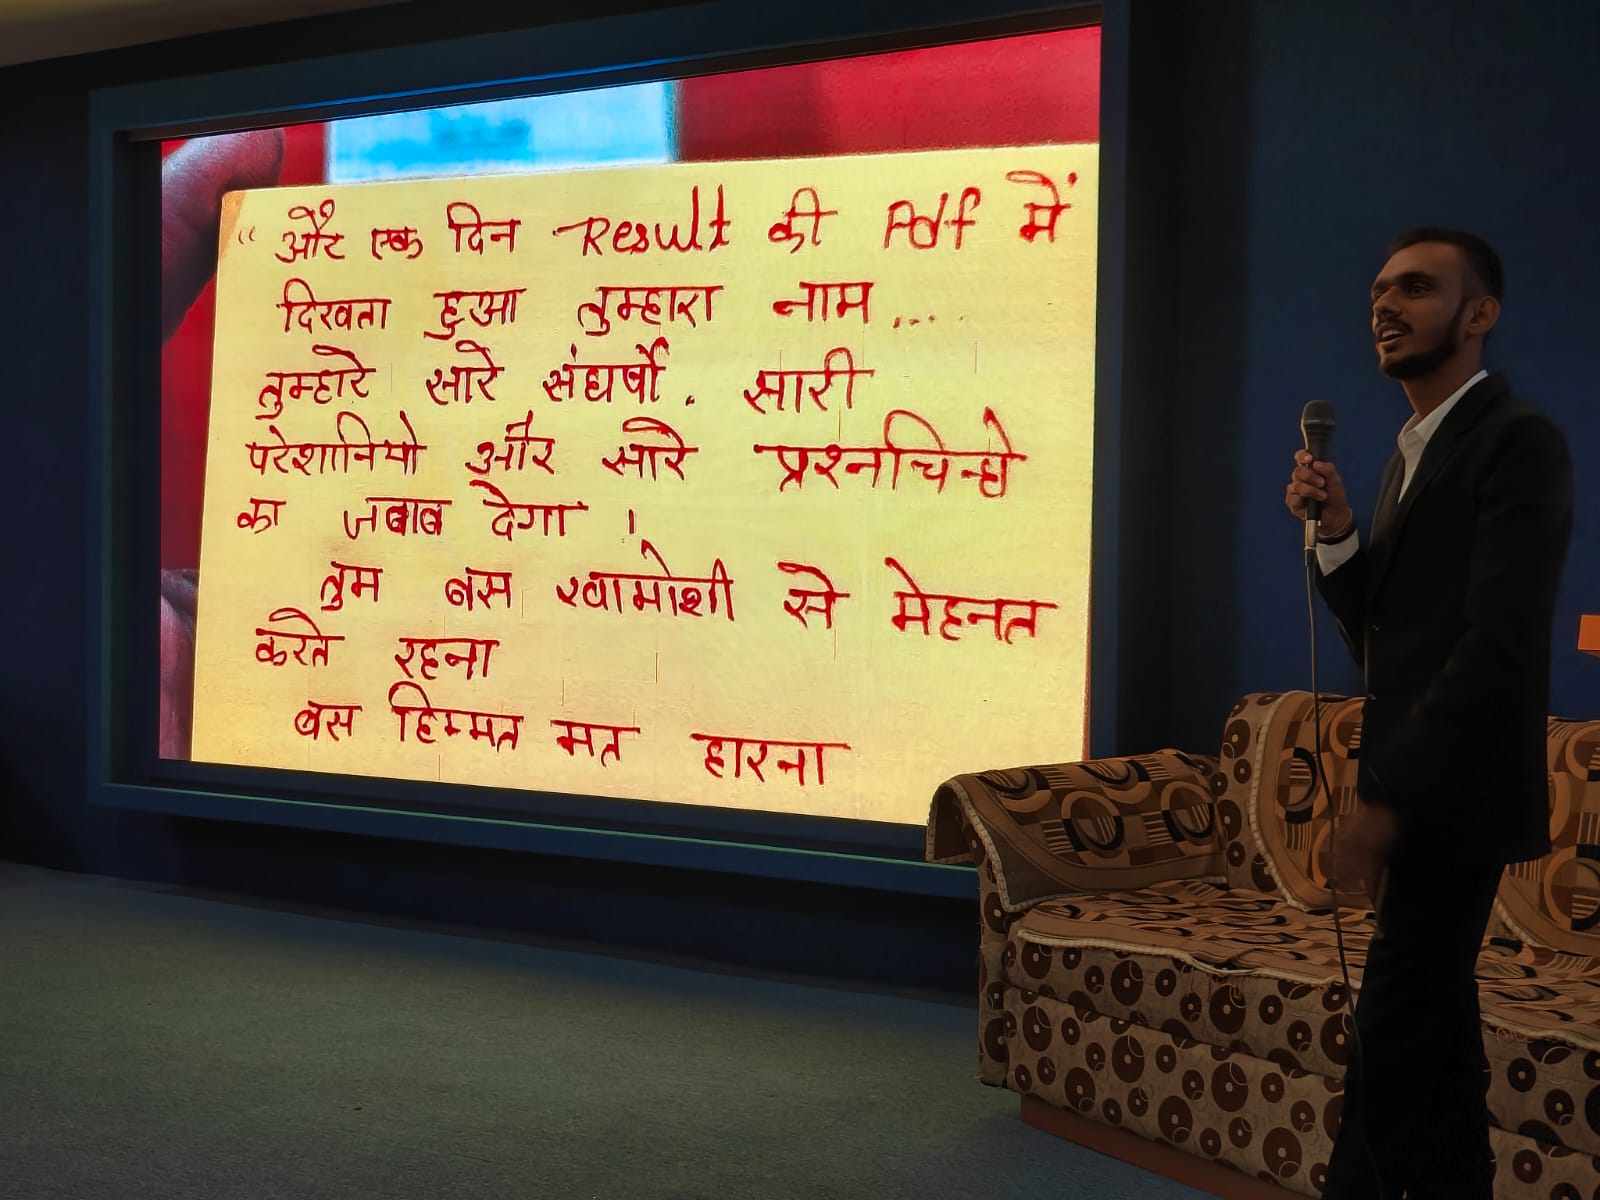 “ और एक दिन Result की Pdf में
दिखता हुआ तुम्हारा नाम ....
तुम्हारे सारे संघर्षो . सारी
परेशानियो और सारे प्रश्नचिन्हो
का जबाब देगा !
तुम बस खामोशी से मेहनत
करते रहना
बस हिम्मत मत हारना